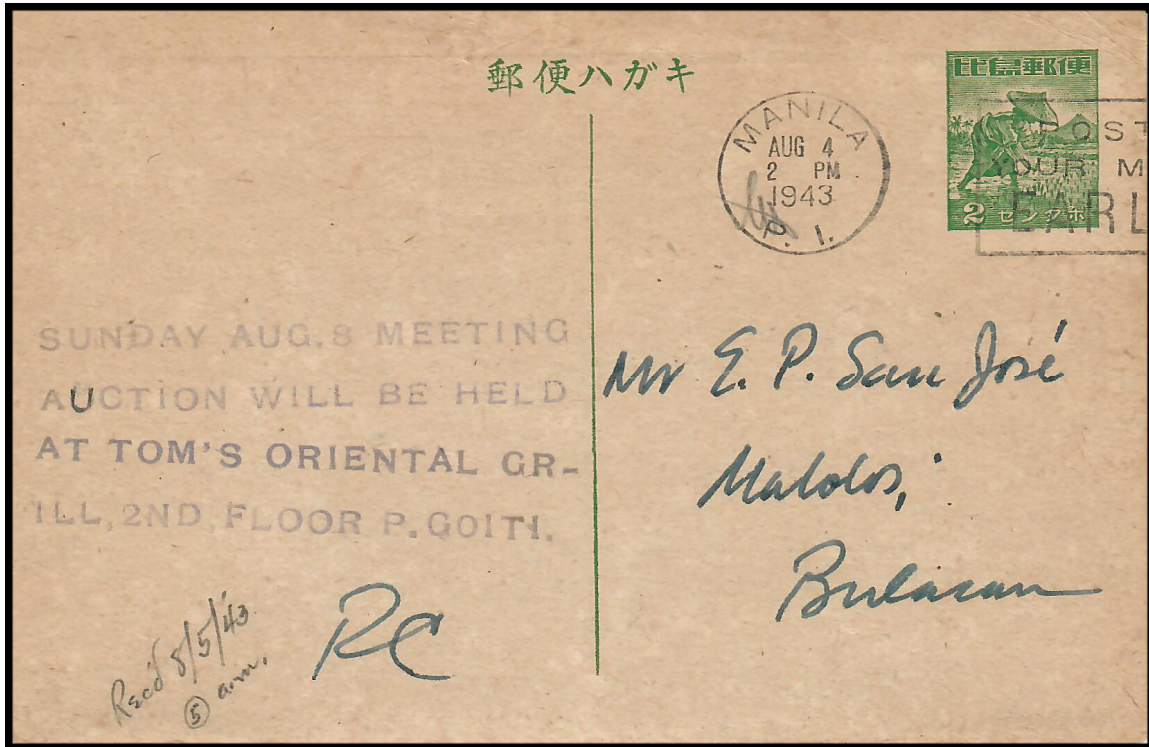 郵便ハガキ
比島郵便
2 センタボ
MANILA
AUG 4
2 PM
1943
P. I.
POST
YOUR M
EARL
SUNDAY AUG. 8 MEETING
AUCTION WILL BE HELD
AT TOM'S ORIENTAL GR-
ILL, 2ND FLOOR P. GOITI.
Mr E. P. San José
Malolos,
Bulacan
RC
Rec'd 8/5/43
5 a.m.